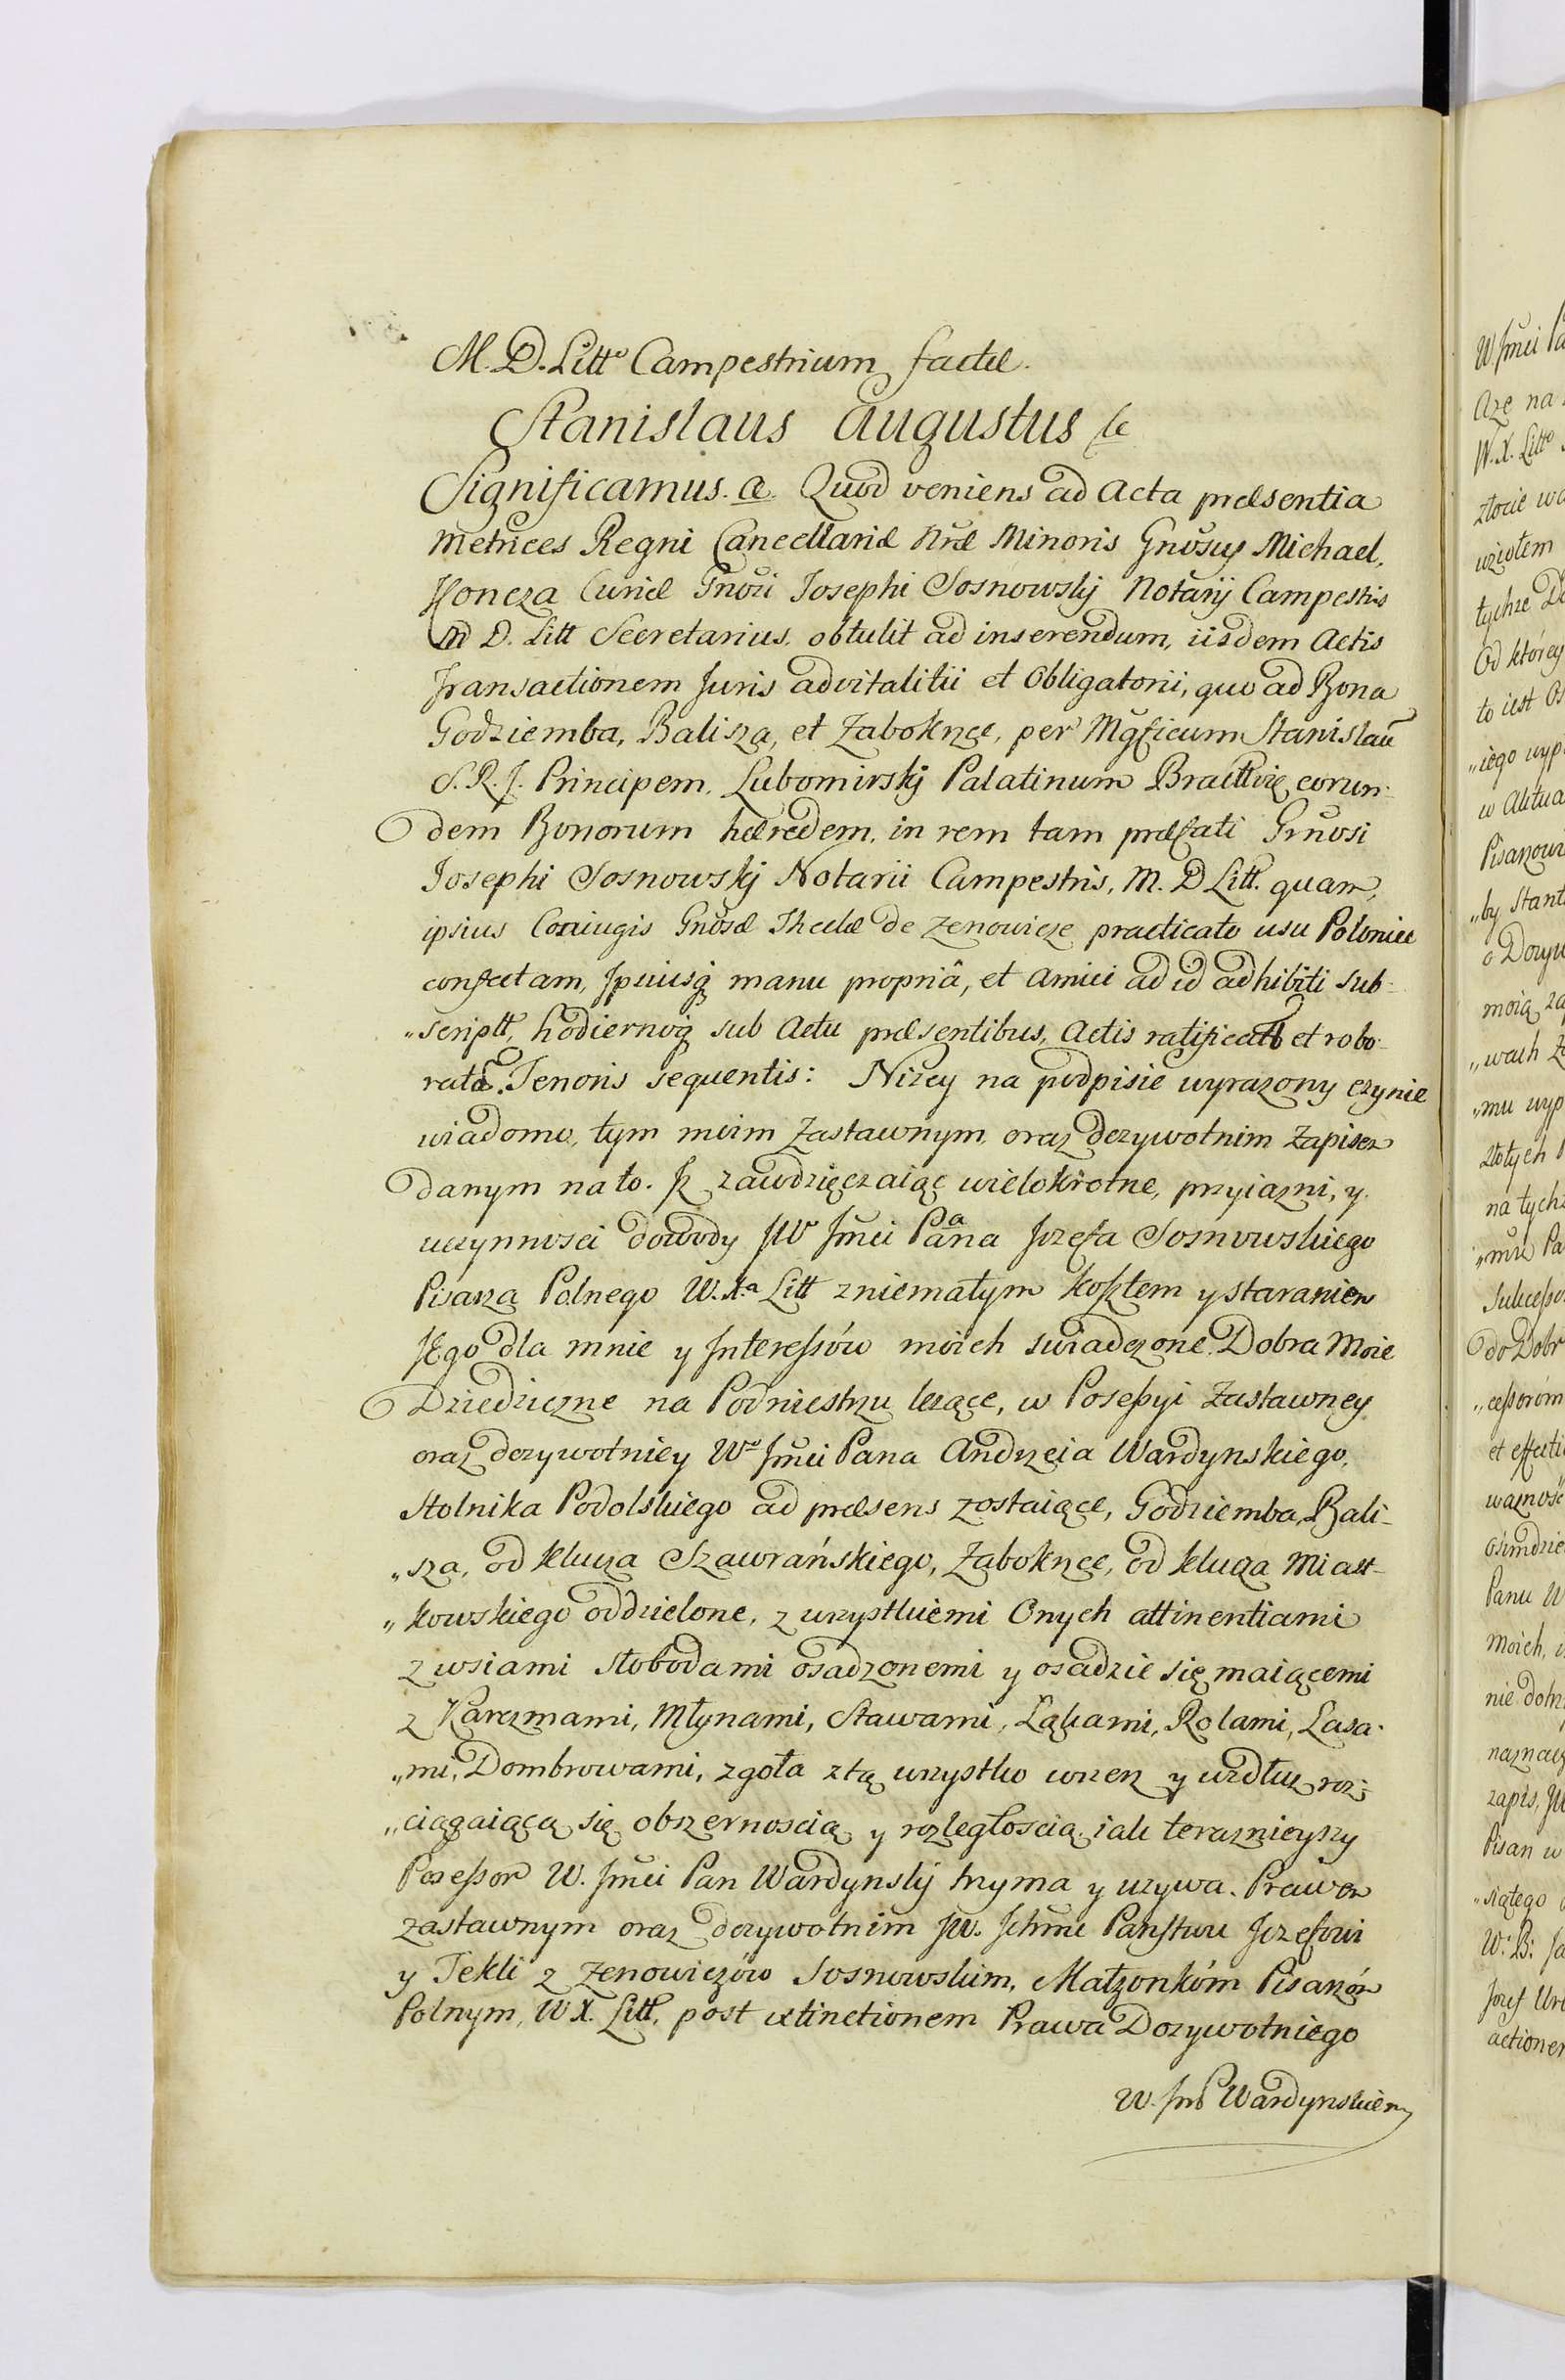 M. D. Litto Campestrium factæ.
Stanislaus Augustus &c
Significamus. &. Quod veniens ad Acta præsentia
Metrices Regni Cancellariæ Nræ Minoris Gnosus Michael,
Honcza Curiæ Gnosi Josephi Sosnowskij Notarij Campestris
M D. Litt Secretarius, obtulit ad inserendum, iisdem Actis
Transactionem Juris advitalitii et Obligatorii, quo ad Bona
Godziemba, Balisza, et Zabokrzcze, per Mgficum Stanislaū
S. R. J. Principem, Lubomirskij Palatinum Bracłłviæ, eorun-
dem Bonorum hæredem, in rem tam præfati Gnosi
Josephi Sosnowskij Notarii Campestris, M. D Litt. quam,
ipsius Coniugis Gnosæ Theclæ de Zenowicze practicato usu Polonico
confectam, Jpsiusq̃ manu propriâ, et Amici ad id adhibiti sub-
„scriptt, hodiernoq̃ sub Actu præsentibus, Actis ratificatt et robo-
ratã. Tenoris sequentis: Nizey na podpisie wyrazony czynie
wiadomo, tym moim Zastawnym, oraz dozywotnim Zapisem
danym na to. Jz zawdzięczaiąc wielokrotne, przyiazni, y
uczynnosci dowody JW Jmci Pana Jozefa Sosnowskiego
Pisarza Polnego W. Xa Litt z niemałym kosztem y staraniem
Jego dla mnie y Jnteressów moich swiadczone. Dobra Moie
Dziedziczne na Podniestrzu lezące, w Possessyi Zastawney
oraz dozywotniey Wo Jmci Pana Andrzeia Wardynskiego,
Stolnika Podolskiego ad præsens zostaiące, Godziemba, Bali-
„sza, od klucza Szawrańskiego, Zabokrzcze, od klucza Miast-
„kowskiego oddzielone, z wszystkiemi Onych attinentiami
z wsiami słobodami osadzonemi y osadzie się maiącemi
z Karczmami, Młynami, Stawami, Łąkami, Rolami, Lasa-
„mi, Dombrowami, zgoła z tą wszystko wszerz y wzdłuz roz-
„ciągaiącą się obszernoscią y rozległoscią, iak teraznieyszy
Possessor W. Jmci Pan Wardynskij trzyma y uzywa. Prawem
zastawnym oraz dozywotnim JW. Jchmć Panstwu Jozefowi
y Tekli z Zenowiczów Sosnowskim, Małzonkóm Pisarzóm
Polnym, W X. Litt, post extinctionem Prawa Dozywotniego
W. Jmć P Wardynskiem
W Jmci
aze na
W. X. Litto
złocie
wziołem
tychze
Od którey
to iest
„iego
w Aktua
„by
moią
„wach
„mu
złotych
na tych
do Dobr
„cessoróm
Panu
moich,
zapis,
Pisan w
„siątego
actionem